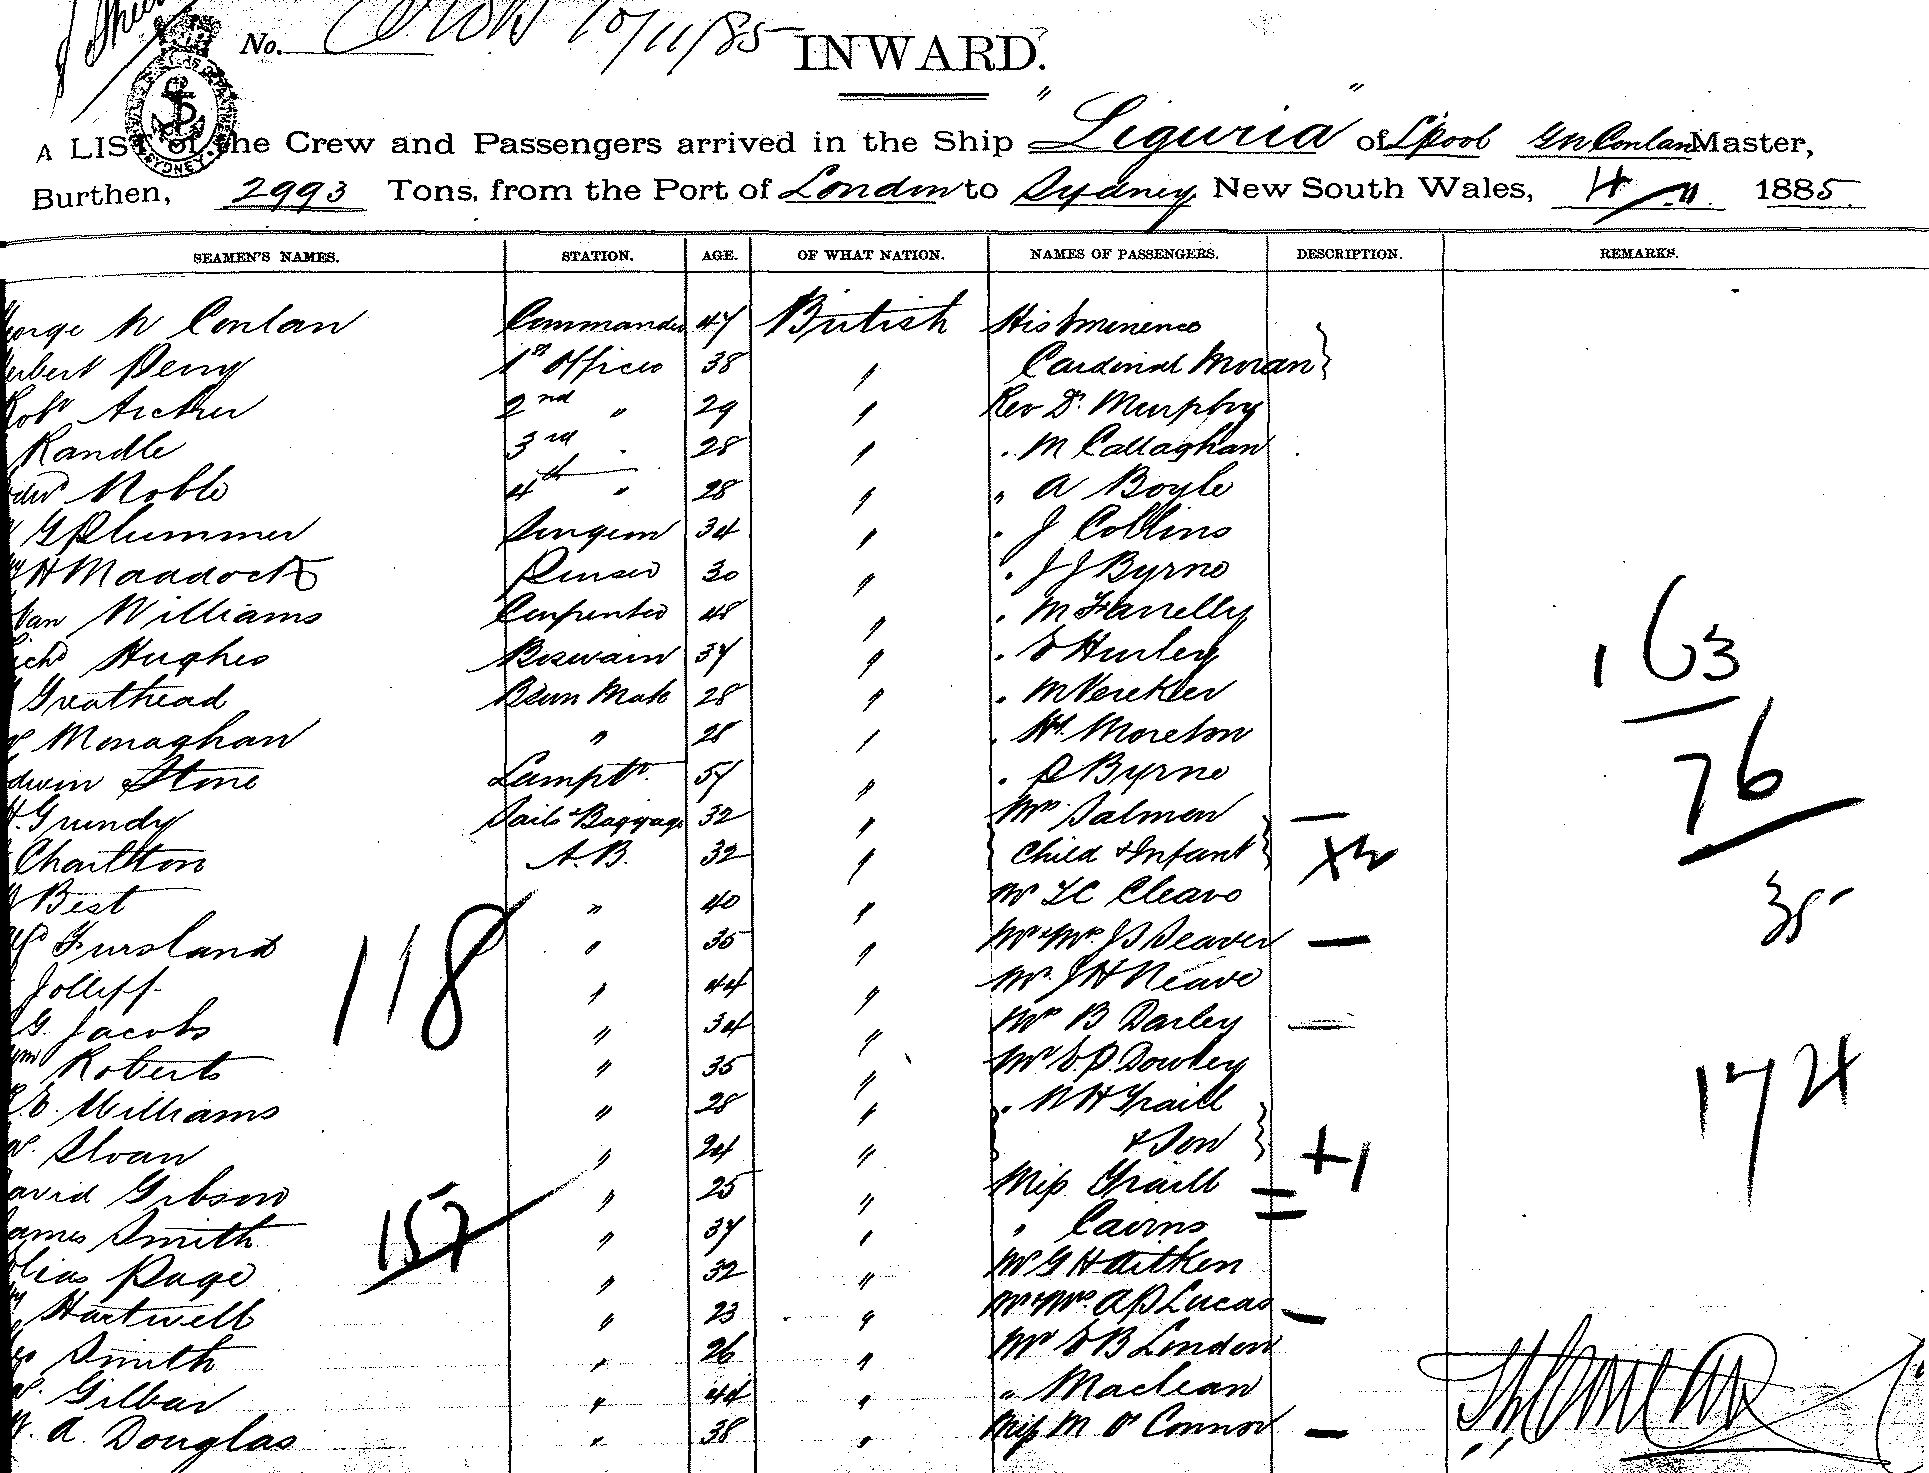 No. Oront 10/11/85
INWARD.
A LIST of the Crew and Passengers arrived in the Ship "Liguria" of Lpool G N Conlan Master,
Burthen, 2993 Tons, from the Port of London to Sydney New South Wales, 4/11 1885
SEAMEN'S NAMES. STATION. AGE. OF WHAT NATION. NAMES OF PASSENGERS. DESCRIPTION. REMARKS.
George N Conlan Commander 47 British His Eminence
Herbert Perry 1st Officer 38 " Cardinal Moran }
Robt Archer 2nd " 29 " Rev Dr. Murphy
Randle 3rd " 28 " " M Callaghan
Edwd Noble 4th " 28 " " A Boyle
G Plummer Surgeon 34 " " J Collins
H Maddock Purser 30 " " J J Byrne
Evan Williams Carpenter 48 " " M Farrelly
Richd Hughes Boswain 37 " " E Hurley
Greathead Bswn Mate 28 " " M Vereker
Monaghan " 28 " " Moreton
Edwin Stone Lamptr. 57 " " P Byrne
Grundy Sails & Baggage 32 " Mrs Salmon —
Charlton A.B. 32 " Child & Infant } x2
Best " 40 " Mr T C Cleave
Fursland " 35 " Mr & Mrs J S Seaver —
Jolliff " 44 " Mr. J H Neave
G. Jacobs " 34 " Mrs B Darley —
Wm Roberts " 35 " Mr E. P. Dowley
E. Williams " 28 " " N H Graill
Sloan " 24 " & Son } +1
David Gibson " 25 " Miss Graill —
James Smith " 37 " " Cairns —
Elias Page " 32 " Mr G H Aitken
Hartwell " 23 " Mr & Mrs. A P Lucas —
Smith " 26 " Mr E B London
Gilbar " 44 " " Maclean
A. Douglas " 38 " Miss M O'Connor —
118
157
163
76
35
174
SYDNEY